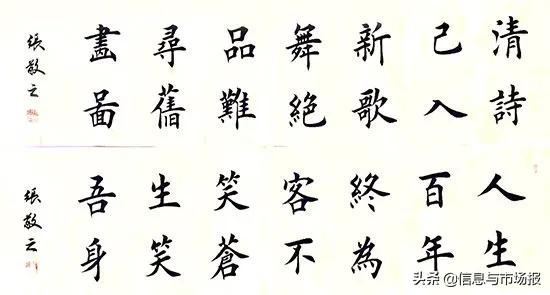 清詩
已入
新歌
舞絕
品難
尋舊
畫啚
張敬云
人生
百年
終為
客不
笑蒼
生笑
吾身
張敬云
头条 @信息与市场报